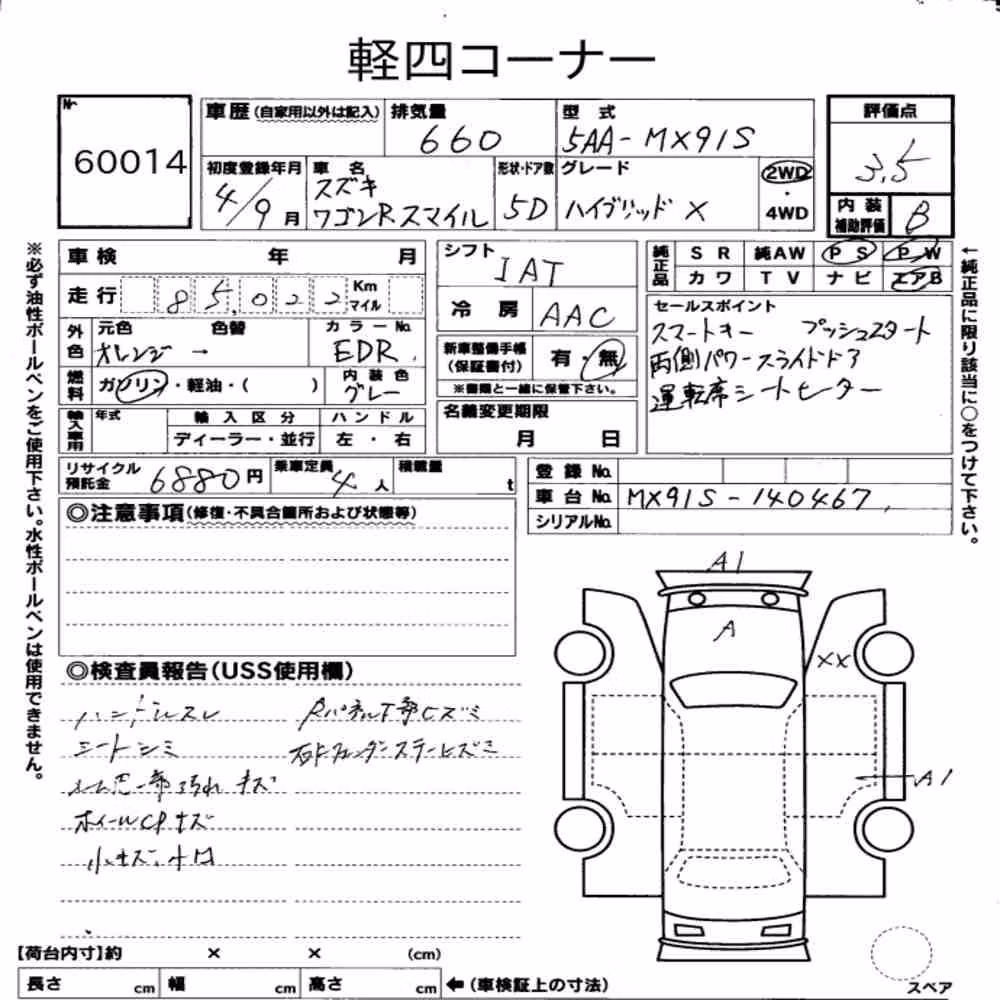 軽四コーナー
Nr 60014
車歴(自家用以外は記入) 排気量 660 型式 5AA-MX91S
初度登録年月 4/9月 車名 スズキ ワゴンRスマイル 形状・ドア数 5D グレード ハイブリッド X 2WD・4WD
評価点 3.5
内装補助評価 B
※必ず油性ボールペンをご使用下さい。水性ボールペンは使用できません。
車検 年 月
走行 85,022 Km マイル
外色 元色 オレンジ 色替 → カラーNo. EDR
燃料 ガソリン・軽油・( ) 内装色 グレー
輸入車用 年式 輸入区分 ディーラー・並行 ハンドル 左・右
シフト IAT
冷房 AAC
新車整備手帳(保証書付) 有・無
※書類と一緒に保管下さい。
名義変更期限 月 日
純正品 SR 純AW PS PW
カワ TV ナビ エアB
セールスポイント
スマートキー プッシュスタート
両側パワースライドドア
運転席シートヒーター
←純正品に限り該当に○をつけて下さい。
リサイクル預託金 6880円 乗車定員 4人 積載量 t
登録No.
車台No. MX91S-140467
シリアルNo.
◎注意事項(修復・不具合箇所および状態等)
◎検査員報告(USS使用欄)
ハンドルスレ
シートシミ
キズ
ホイールCPキズ
小キズ、小凹
Rパネル下部ヒズミ
右Fフェンダーステーヒズミ
A1
A
XX
A1
【荷台内寸】約 × × (cm)
長さ cm 幅 cm 高さ cm ←(車検証上の寸法)
スペア